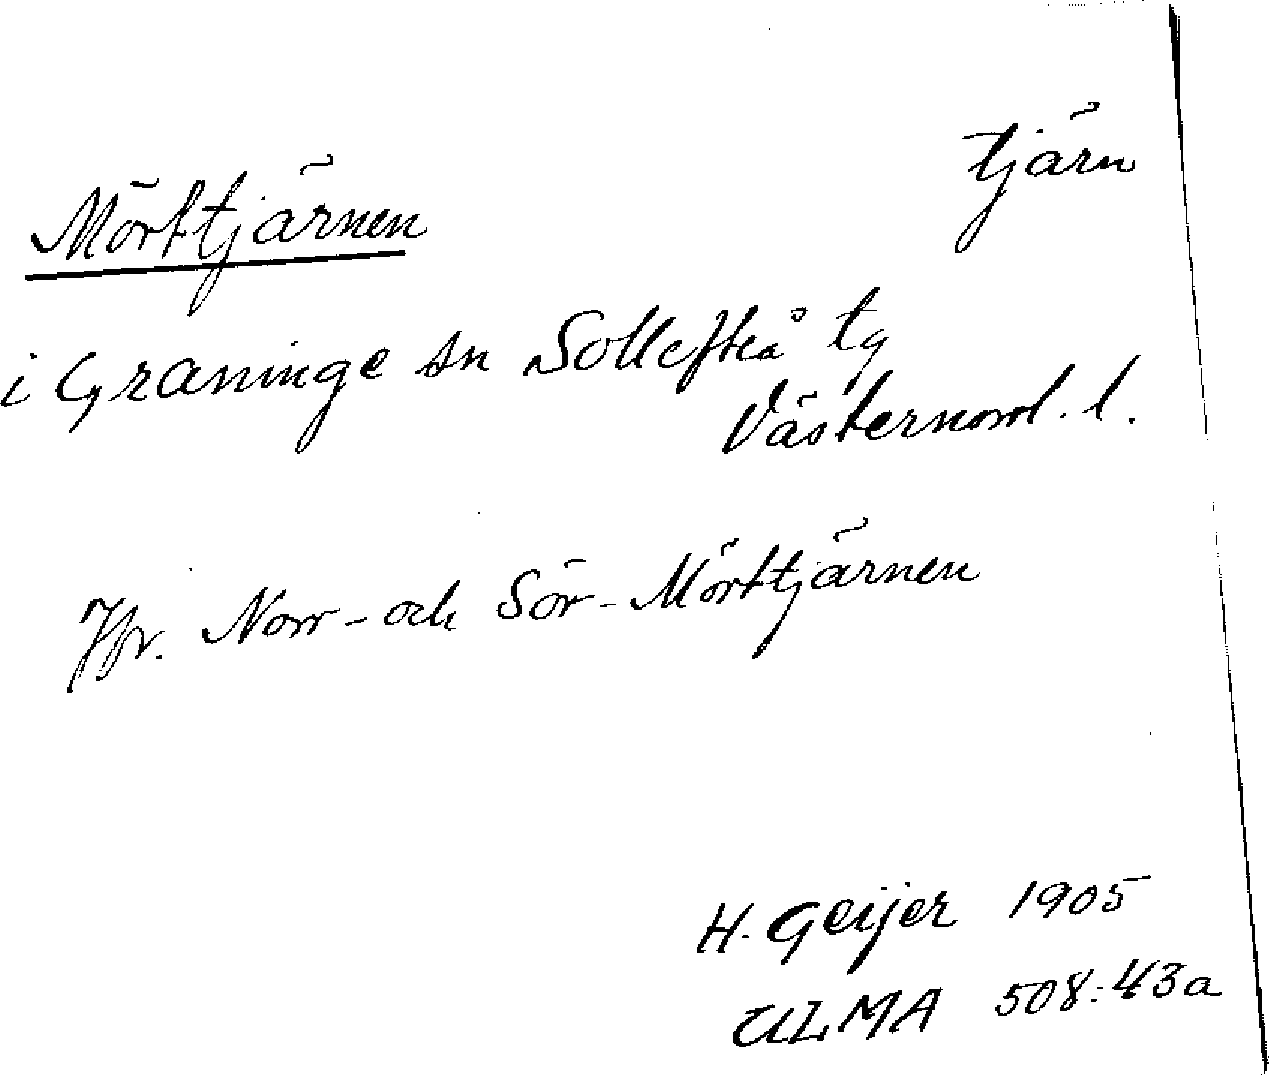 tjärn
Mörttjärnen
i Graninge sn Sollefteå tg
Västernorrl. l.
Jfr. Norr- och Sör-Mörttjärnen
H. Geijer 1905
ULMA 508:43a